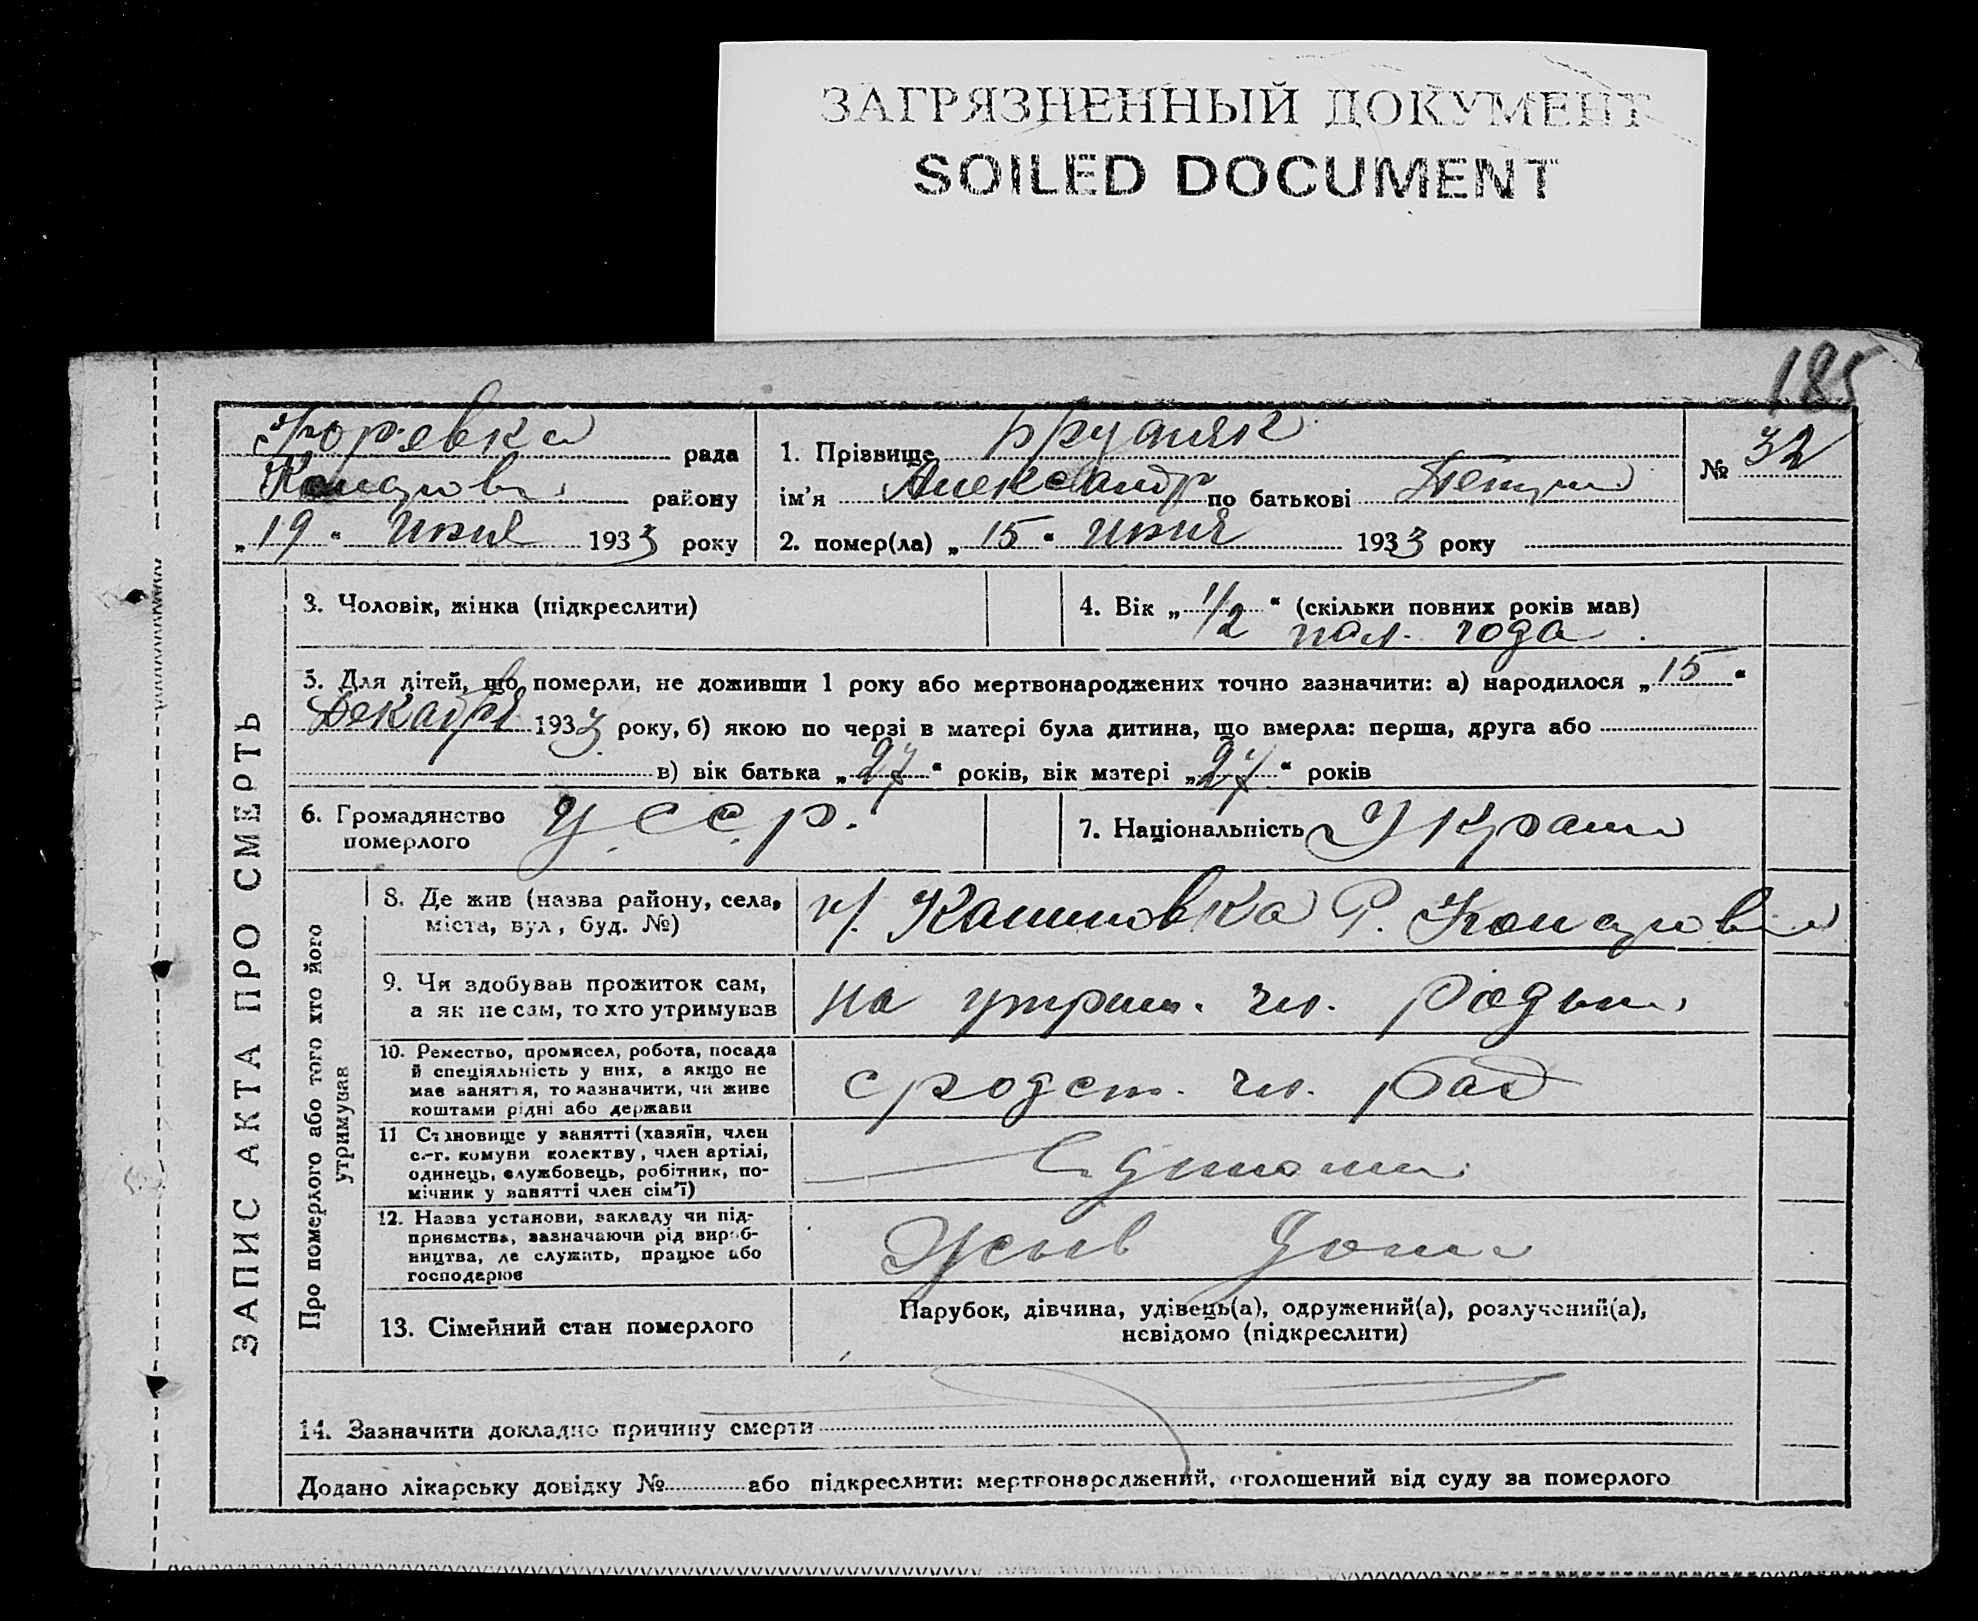 ЗАГРЯЗНЕННЫЙ ДОКУМЕНТ
SOILED DOCUMENT
185
рада
району
"19" июня 1933 року
1. Прізвище
ім'я Александр по батькові
2. помер(ла) "15" июня 1933 року
№ 32
ЗАПИС АКТА ПРО СМЕРТЬ
3. Чоловік, жінка (підкреслити)
4. Вік "1/2" (скільки повних років мав)
пол. года
5. Для дітей, що померли, не доживши 1 року або мертвонароджених точно зазначити: а) народилося "15"
Декабря 1933 року, б) якою по черзі в матері була дитина, що вмерла: перша, друга або
в) вік батька "27" років, вік матері "27" років
6. Громадянство
померлого
У.С.С.Р.
7. Національність
Про померлого або того хто його
утримував
8. Де жив (назва району, села,
міста, вул, буд. №)
9. Чи здобував прожиток сам,
а як не сам, то хто утримував
на
10. Ремество, промисел, робота, посада
й спеціяльність у них, а якщо не
має заняття, то зазначити, чи живе
коштами рідні або держави
11 Становище у занятті (хазяїн, член
с.-г. комуни колектву, член артілі,
одинець, службовець, робітник, по-
мічник у занятті член сім'ї)
12. Назва установи, закладу чи під-
приємства, зазначаючи рід вироб-
ництва, де служить, працює або
господарює
13. Сімейний стан померлого
Парубок, дівчина, удівець(а), одружений(а), розлучений(а),
невідомо (підкреслити)
14. Зазначити докладно причину смерти
Додано лікарську довідку № або підкреслити: мертвонароджений, оголошений від суду за померлого